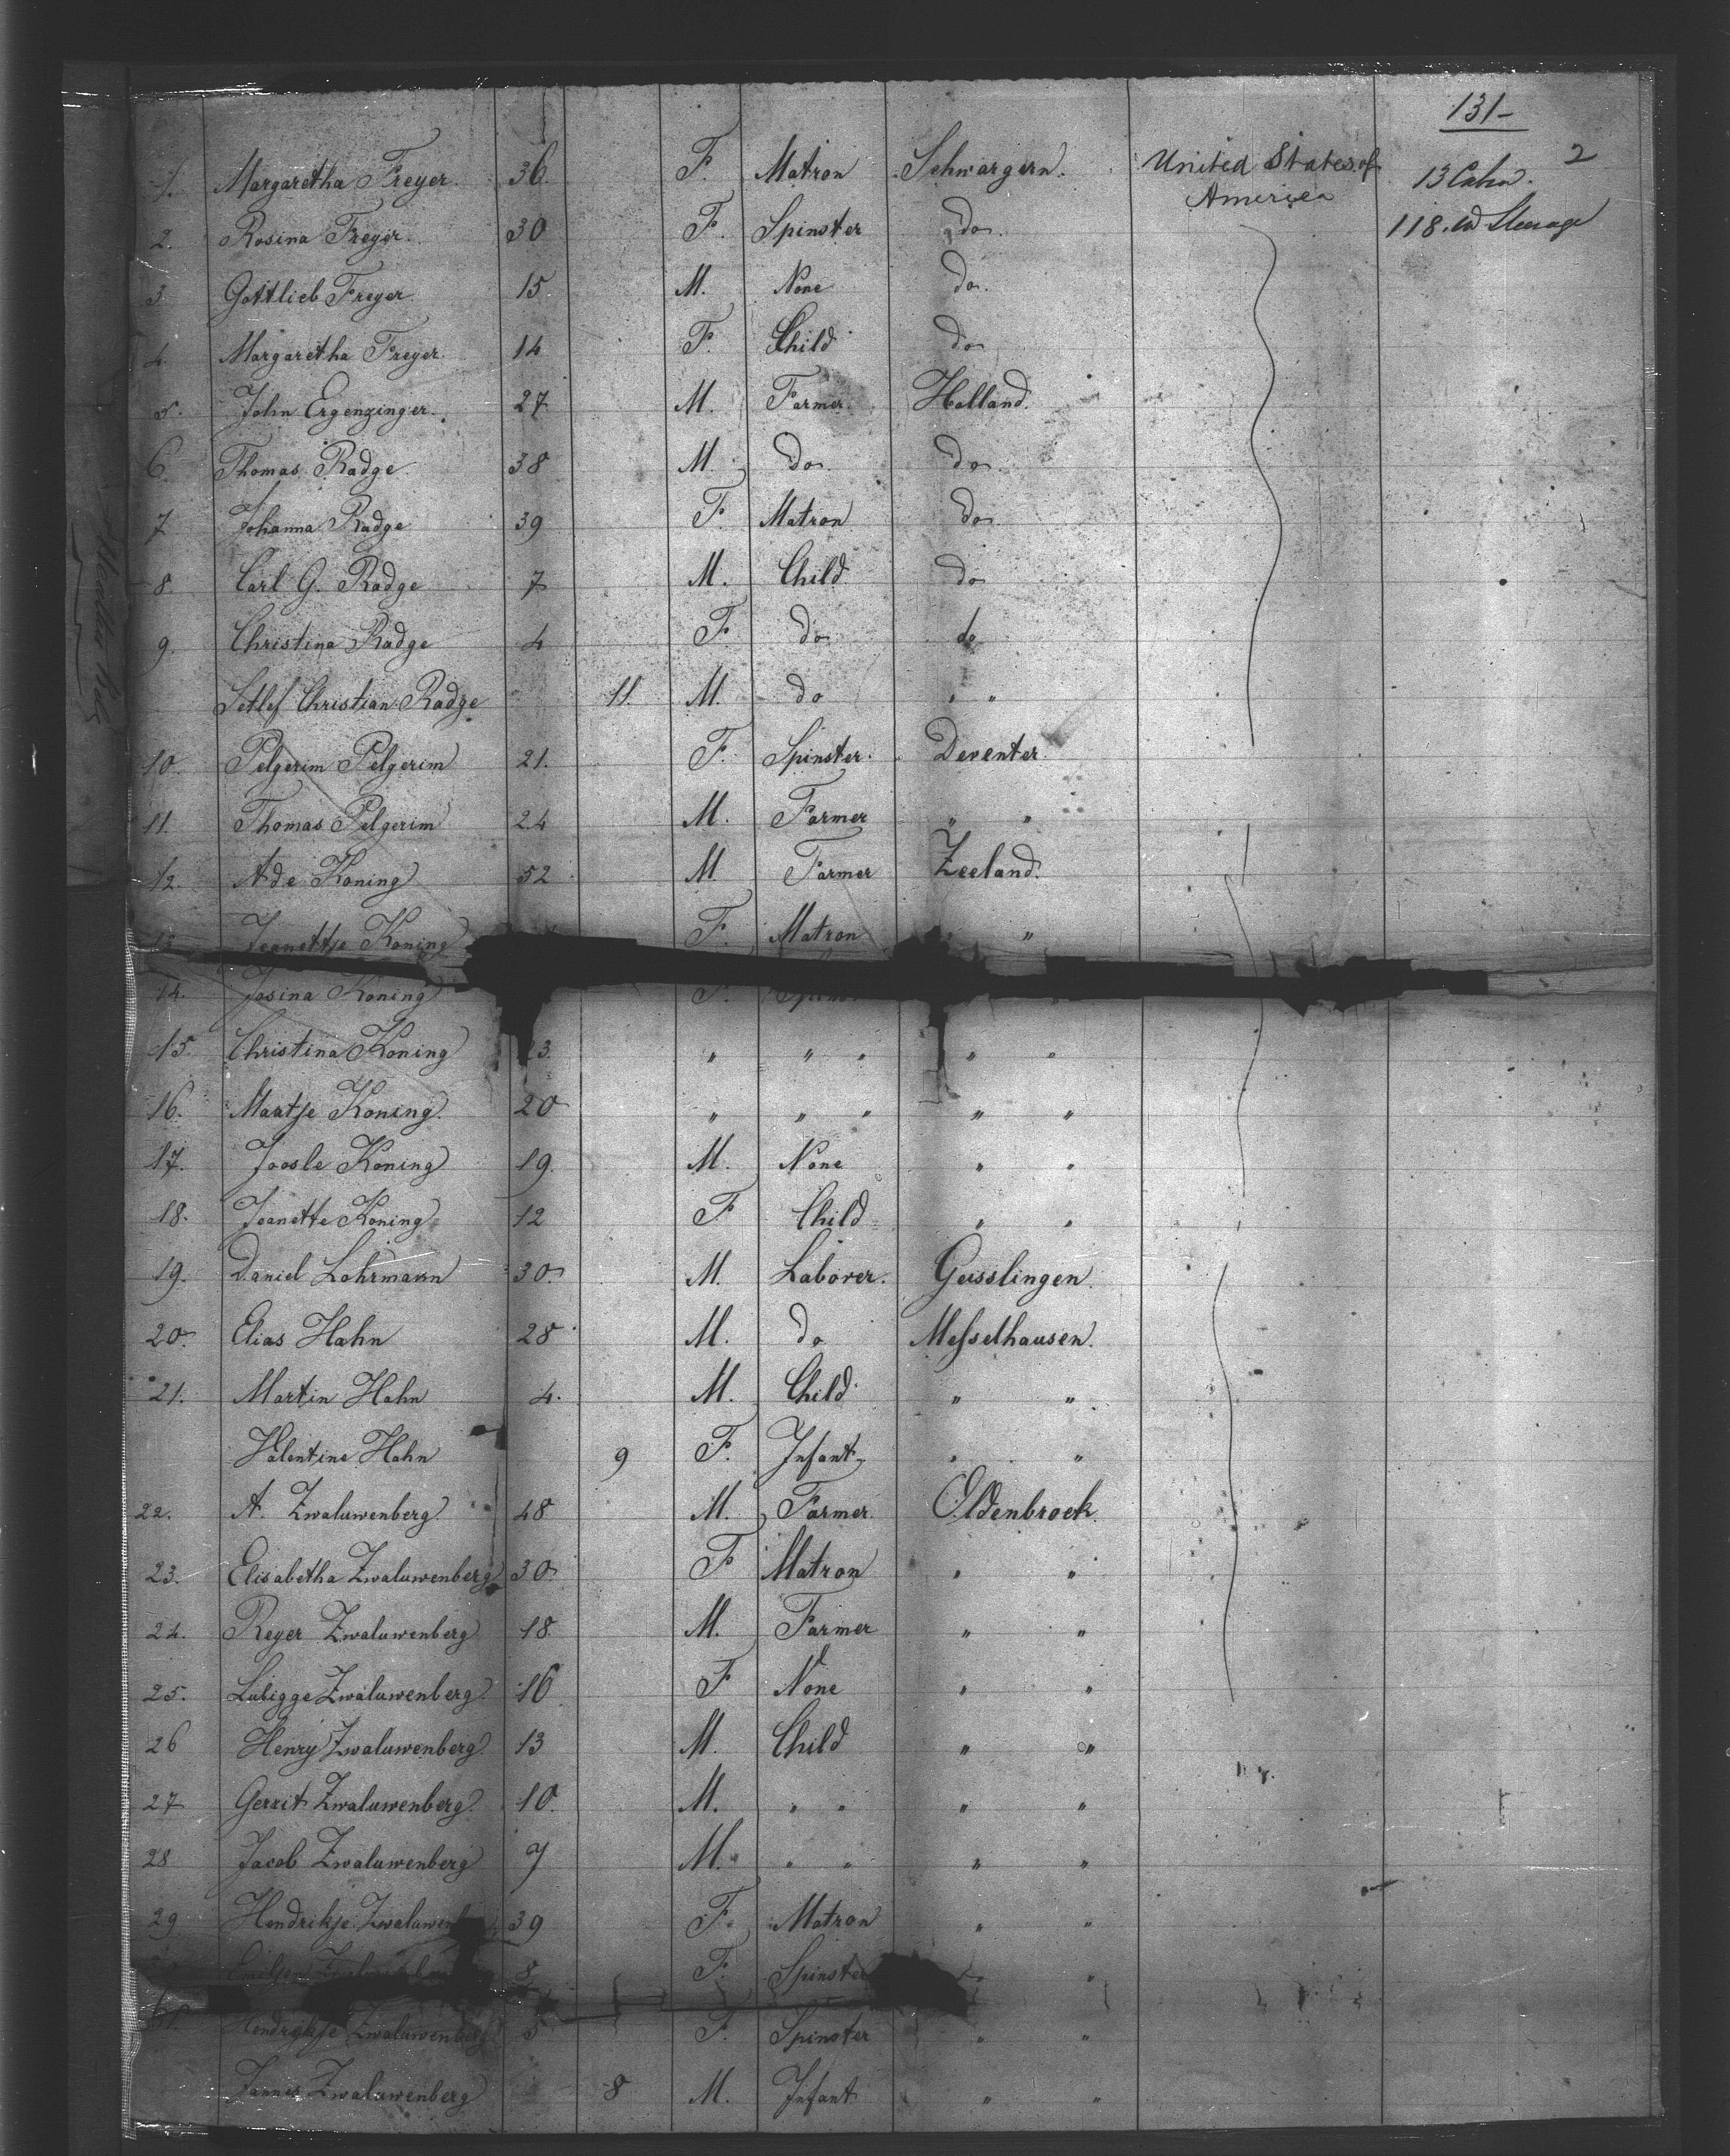 131-
2
1. Margaretha Freyer. 36 F. Matron Schwargern. United States of
America
13 Cabin.
2. Rosina Freyer. 30 F. Spinster do. 118. Steerage
3 Gottlieb Freyer. 15 M. None do.
4. Margaretha Freyer. 14 F. Child do
5. John Ergenzinger. 27 M. Farmer. Holland.
6. Thomas Radge. 38 M. do. do
7 Johanna Radge 39 F. Matron do
8. Carl G. Radge 7 M. Child do
9. Christina Radge 4 F. do do
Setlef Christian Radge 11. M. do " "
10. Pelgerim Pelgerim 21. F. Spinster. Deventer.
11. Thomas Pelgerim 24 M. Farmer " "
12. A de Koning 52 M Farmer Zeeland.
13 Jeanettje Koning F. Matron "
14. Josina Koning F.
15. Christina Koning 23. " " " " "
16. Maatje Koning. 20 " " " " "
17. Joosle Koning 19. M. None " "
18. Jeanette Koning 12 F Child " "
19. Daniel Lohrmann 30. M. Laborer. Geisslingen.
20. Elias Hahn 28 M. do Messelhausen.
21. Martin Hahn 4. M. Child " "
Valentine Hahn 9 F. Infant " "
22. A. Zwaluwenberg 48 M. Farmer. Oldenbroek.
23. Elisabetha Zwaluwenberg 30. F Matron " "
24. Reyer Zwaluwenberg 18 M. Farmer " "
25. Lubigge Zwaluwenberg. 16 F None " "
26 Henry Zwaluwenberg. 13 M. Child " "
27 Gerrit Zwaluwenberg. 10. M. " " " "
28 Jacob Zwaluwenberg 7 M. " " " "
29 Hendrikje Zwaluwenberg 39 F. Matron " "
8 F. Spinster " "
Hendrykje Zwaluwenberg 5 F. Spinster " "
Jannes Zwaluwenberg 8 M. Infant " "